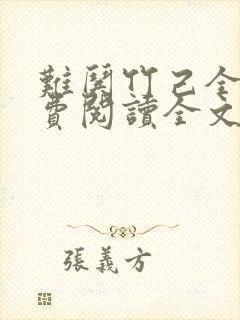 難鬥竹己全
費閱讀全文
張義方